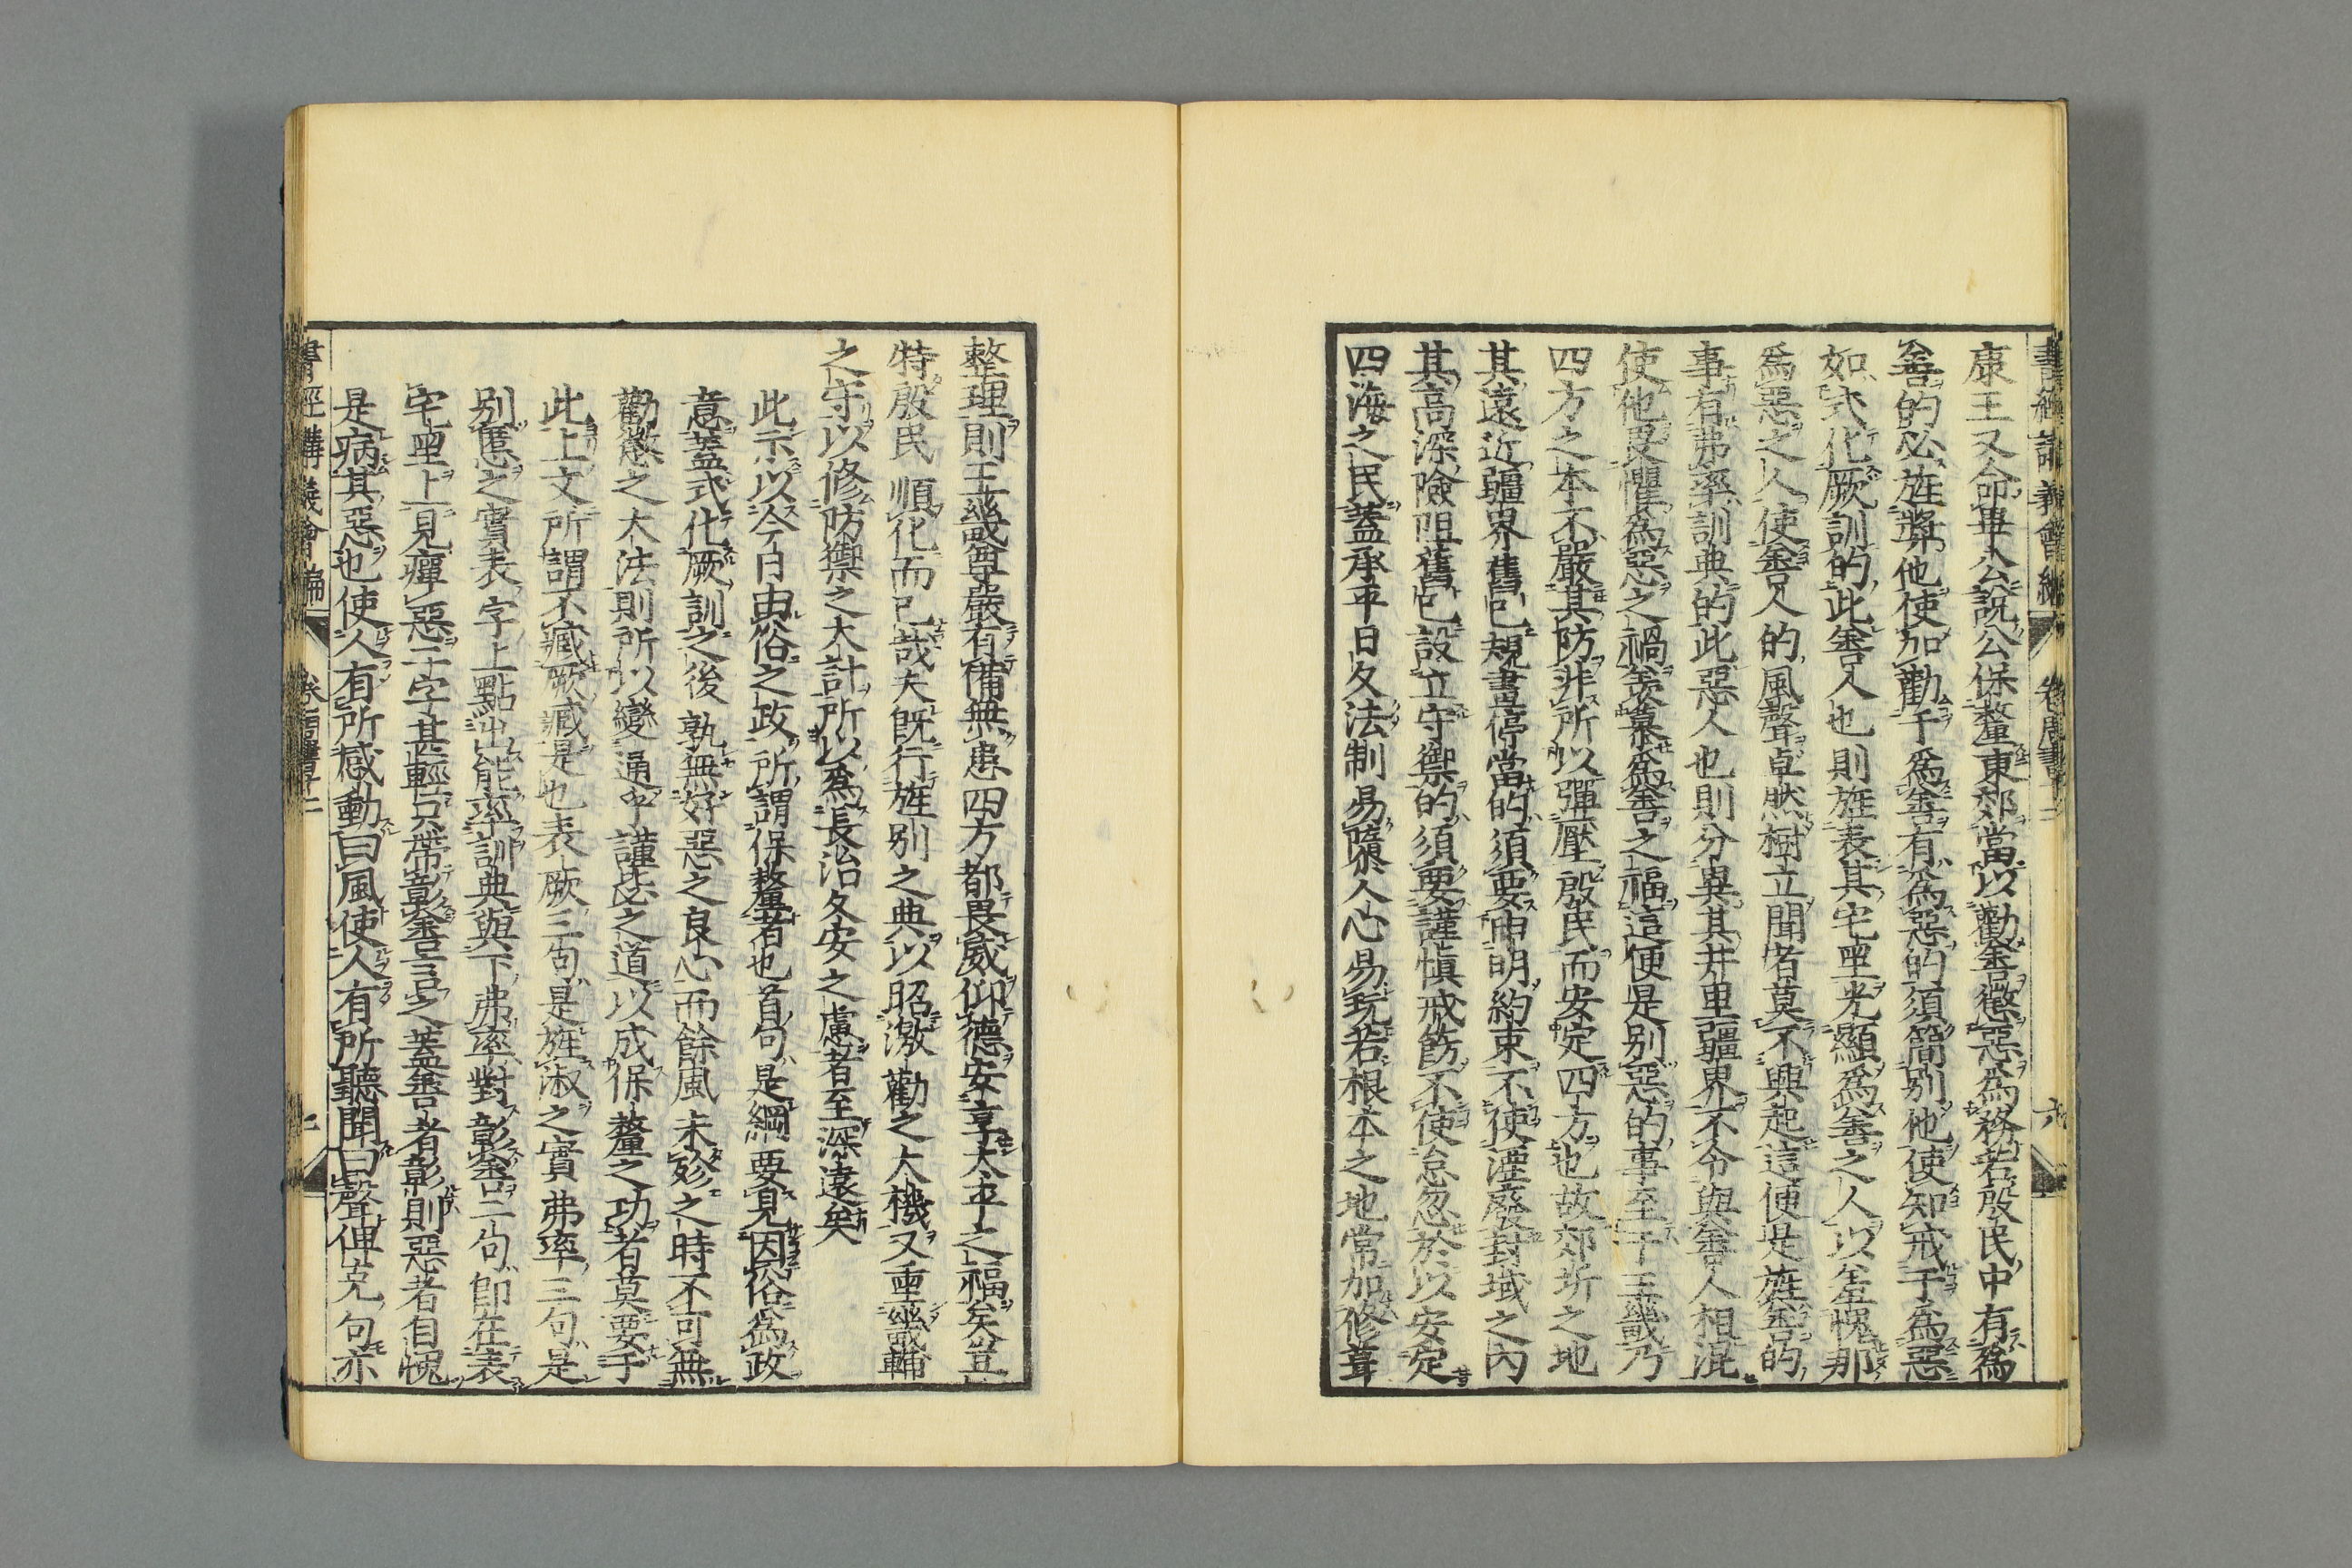 書經講義會編 卷周書十二 六
康王又命畢公說公保釐東郊當以勸善懲惡為務若殷民中有為
善的必旌獎他使加勸于為善有為惡的須簡別他使知戒于為惡
如式化厥訓的此善人也則旌表其宅里光顯為善之人以羞愧那
為惡之人使善人的風聲卓然樹立聞者莫不興起這便是旌善的
事有弗率訓典的此惡人也則分異其井里疆界不令與善人相混
使他畏懼為惡之禍羨慕為善之福這便是別惡的事至于王畿乃
四方之本不嚴其防非所以彈壓殷民而安定四方也故郊圻之地
其遠近疆界舊已規畫停當的須要申明約束不使湮廢封域之內
其高深險阻舊已設立守禦的須要謹慎戒飭不使怠忽於以安定
四海之民蓋承平日久法制易隳人心易玩若根本之地常加修葺
整理則王畿尊嚴有備無患四方都畏威仰德安享太平之福矣豈
特殷民順化而已哉夫既行旌别之典以昭激勸之大機又重畿輔
之守以修防禦之大計所以為長治久安之慮者至深遠矣
此示以今日由俗之政所謂保釐者也首句是綱要見因俗為政
意蓋式化厥訓之後孰無好惡之良心而餘風未殄之時不可無
勸懲之大法則所以變通乎謹毖之道以成保釐之功者莫要于
此上文所謂不臧厥臧是也表厥三句是旌淑之實弗率三句是
别慝之實表字上點出能率訓典與下弗率對彰善二句即在表
宅里上見癉惡二字甚輕只帶彰善言之蓋善者彰則惡者自愧
是病其惡也使人有所感動曰風使人有所聽聞曰聲俾克句亦
書經講義會編 卷周書十二 七